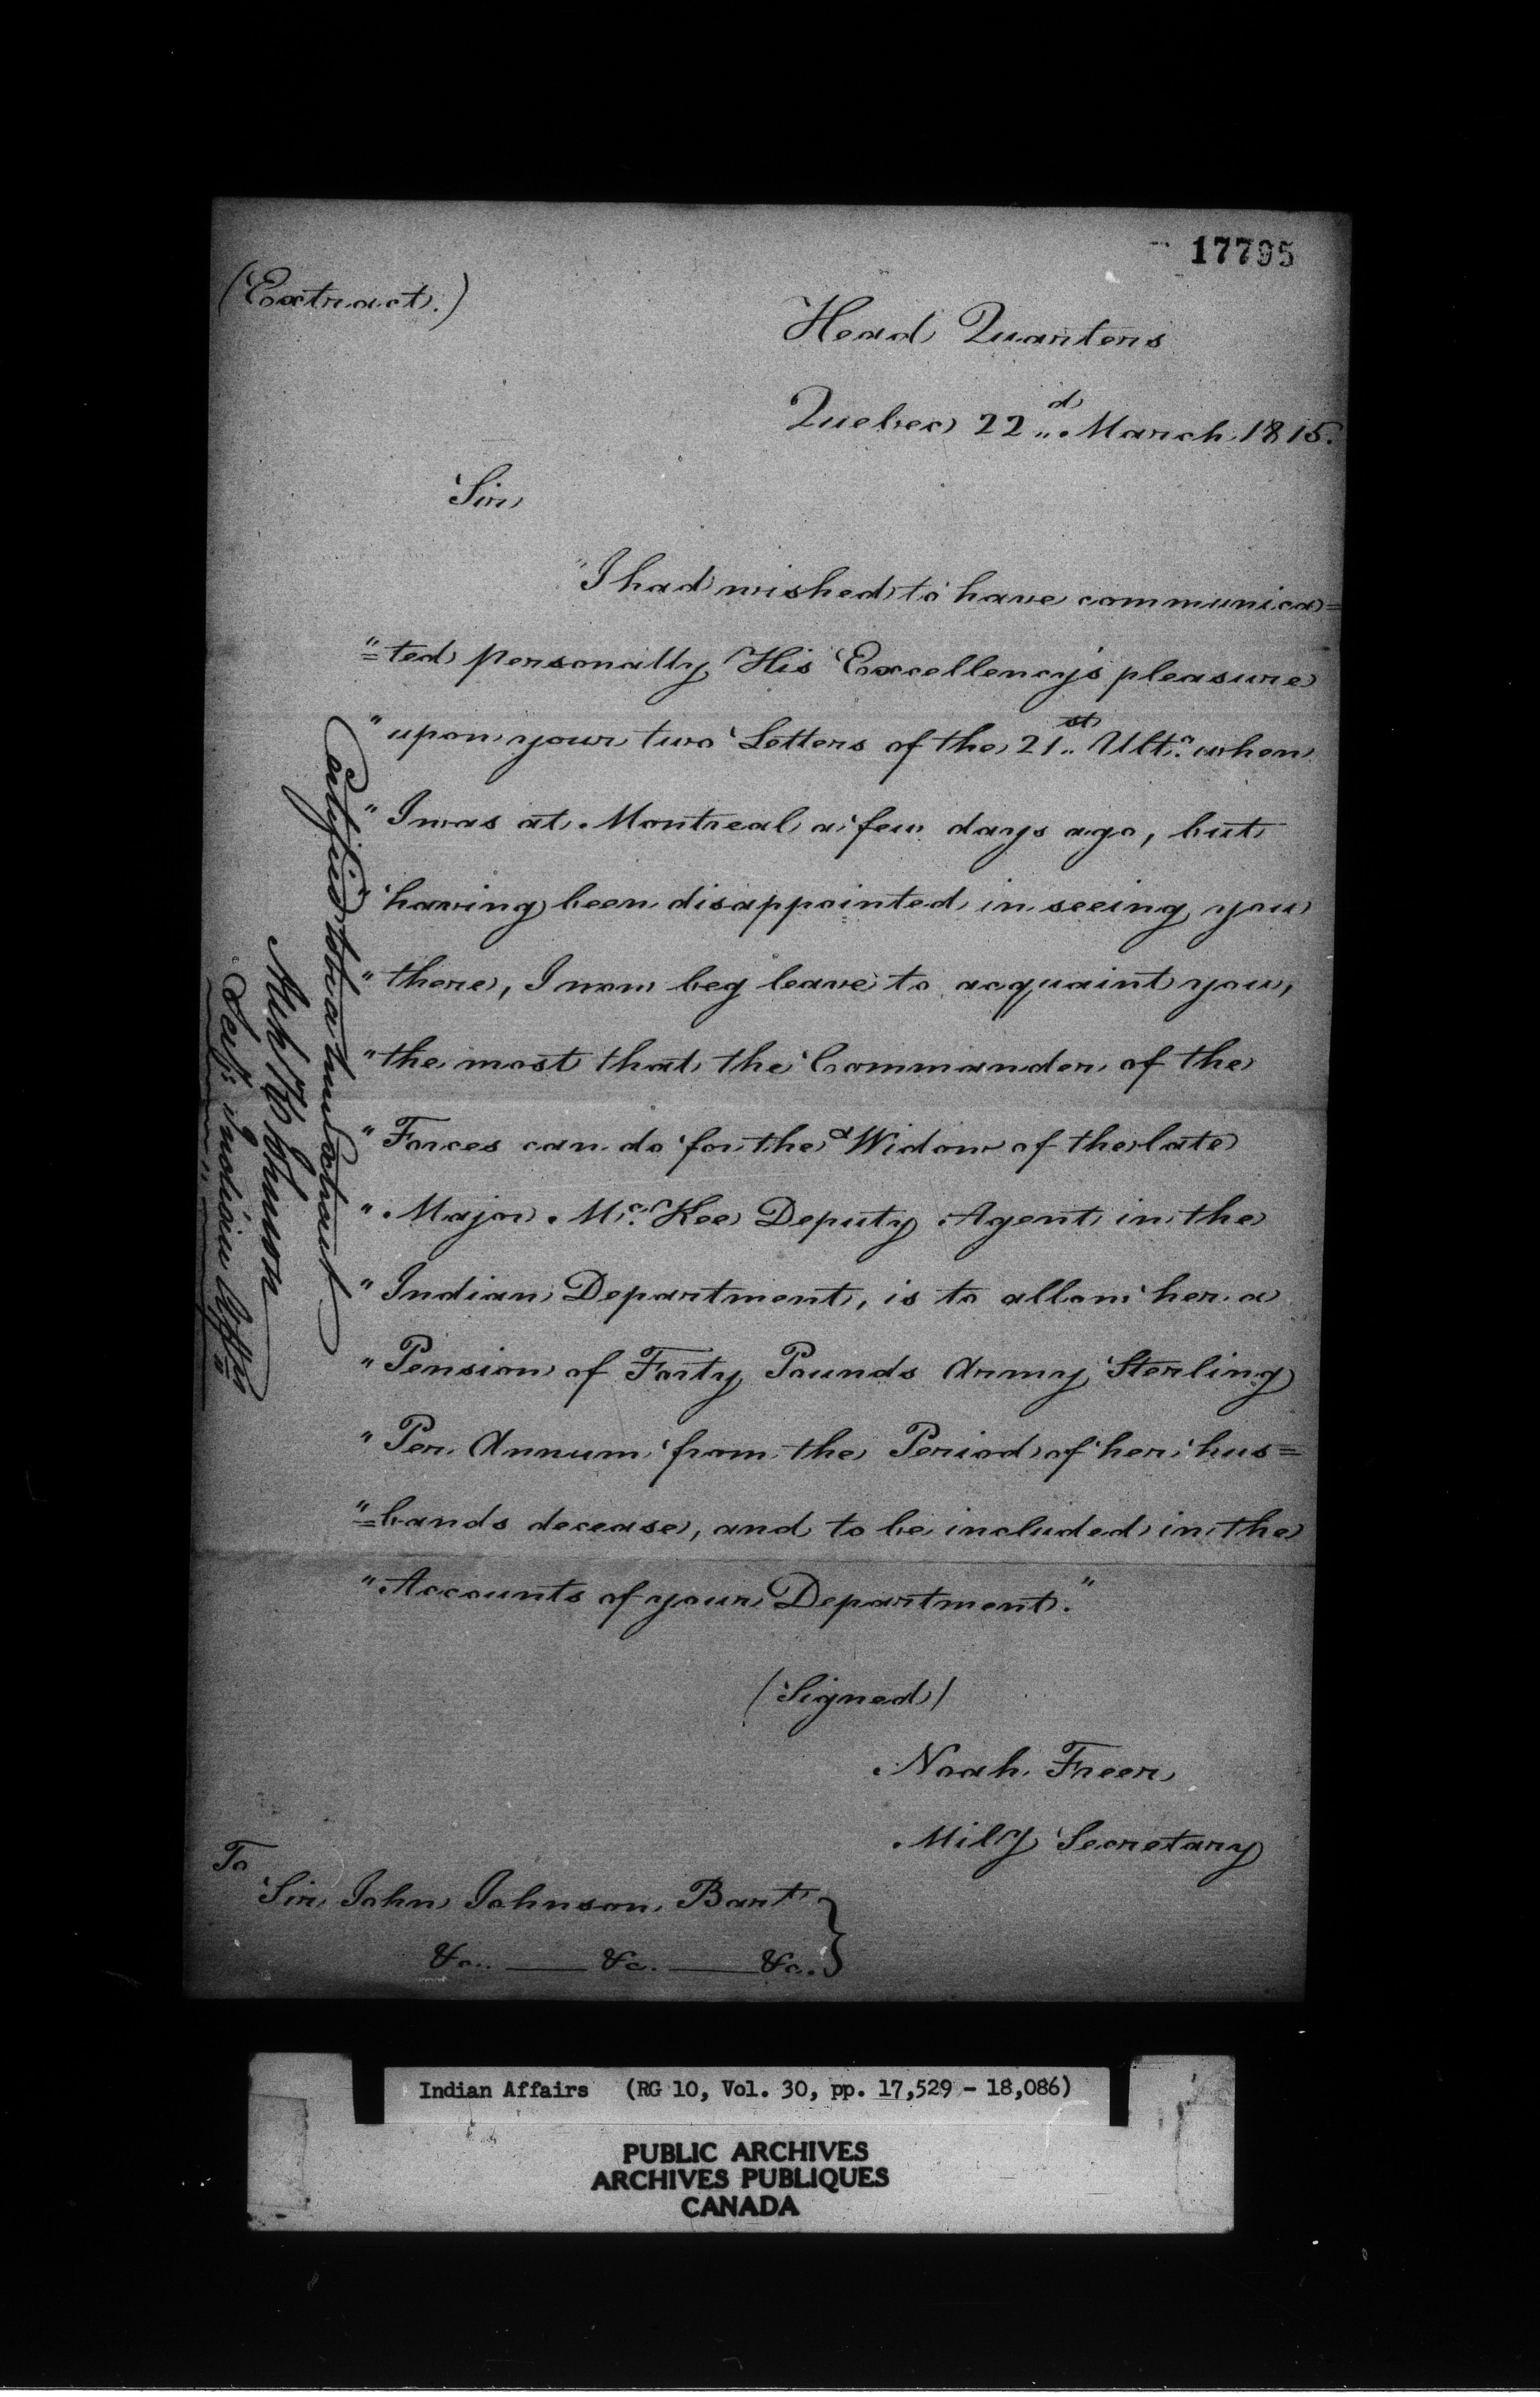 17795
(Extract.)
Head Quarters
Quebec 22d March 1815.
Sir
"I had wished to have communica=
"=ted personally His Excellency's pleasure
"upon your two Letters of the 21st Ulto. when
"I was at Montreal a few days ago, but
"having been disappointed in seeing you
"there, I now beg leave to acquaint you,
"the most that the Commander of the
"Forces can do for the Widow of the late
"Major McKee Deputy Agent in the
"Indian Department, is to allow her a
"Pension of Forty Pounds Army Sterling
"Per Annum from the Period of her hus=
"=bands decease, and to be included in the
"Accounts of your Department."
(Signed)
Noah Freer
Mily Secretary
To
Sir John Johnson Bart
&c. — &c. — &c.
Certified to be a true Extract
Johnson
Indian
Indian Affairs (RG 10, Vol. 30, pp. 17,529 - 18,086)
PUBLIC ARCHIVES
ARCHIVES PUBLIQUES
CANADA